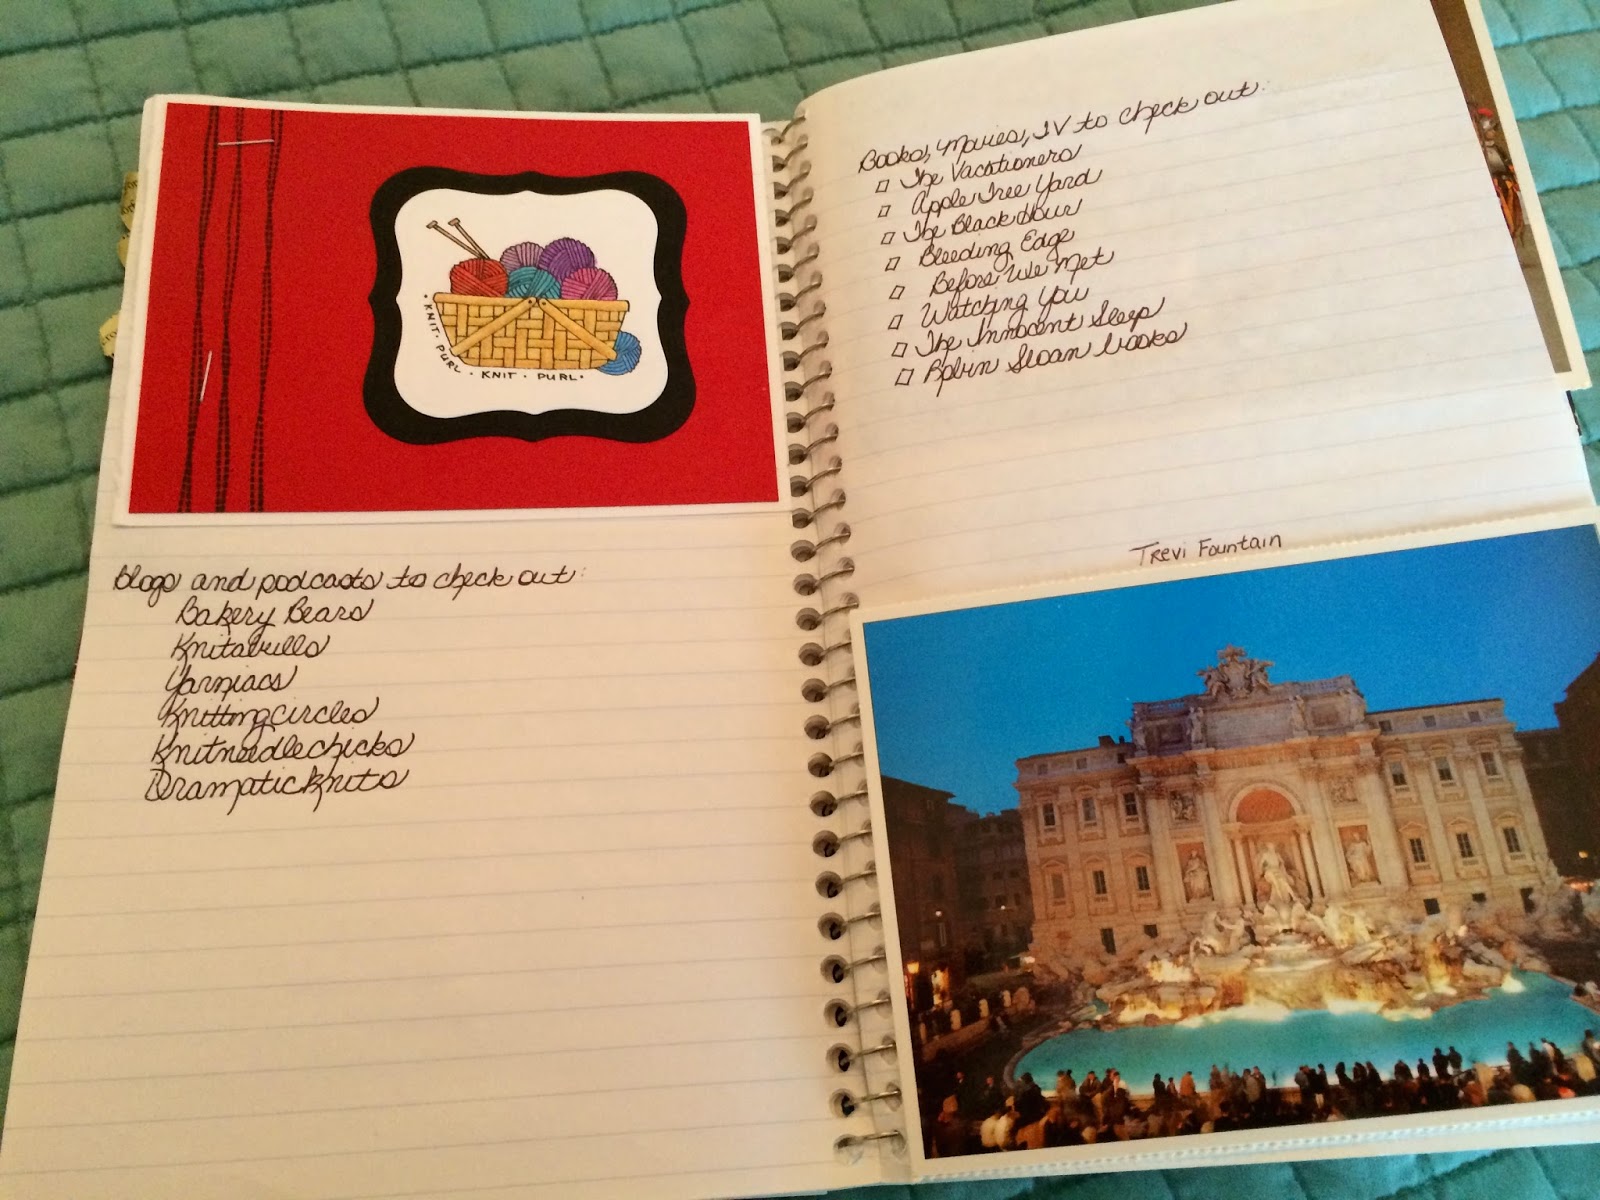 • KNIT • PURL • KNIT • PURL •
blogs and podcasts to check out:
Bakery Bears
Knitabulls
Yarniacs
Knittingcircles
Knitneedlechicks
Dramaticknits
Books, Movies, TV to check out:
The Vacationers
Apple Tree Yard
The Black Hour
Bleeding Edge
Before We Met
Watching You
The Innocent Sleep
Robin Sloan books
Trevi Fountain